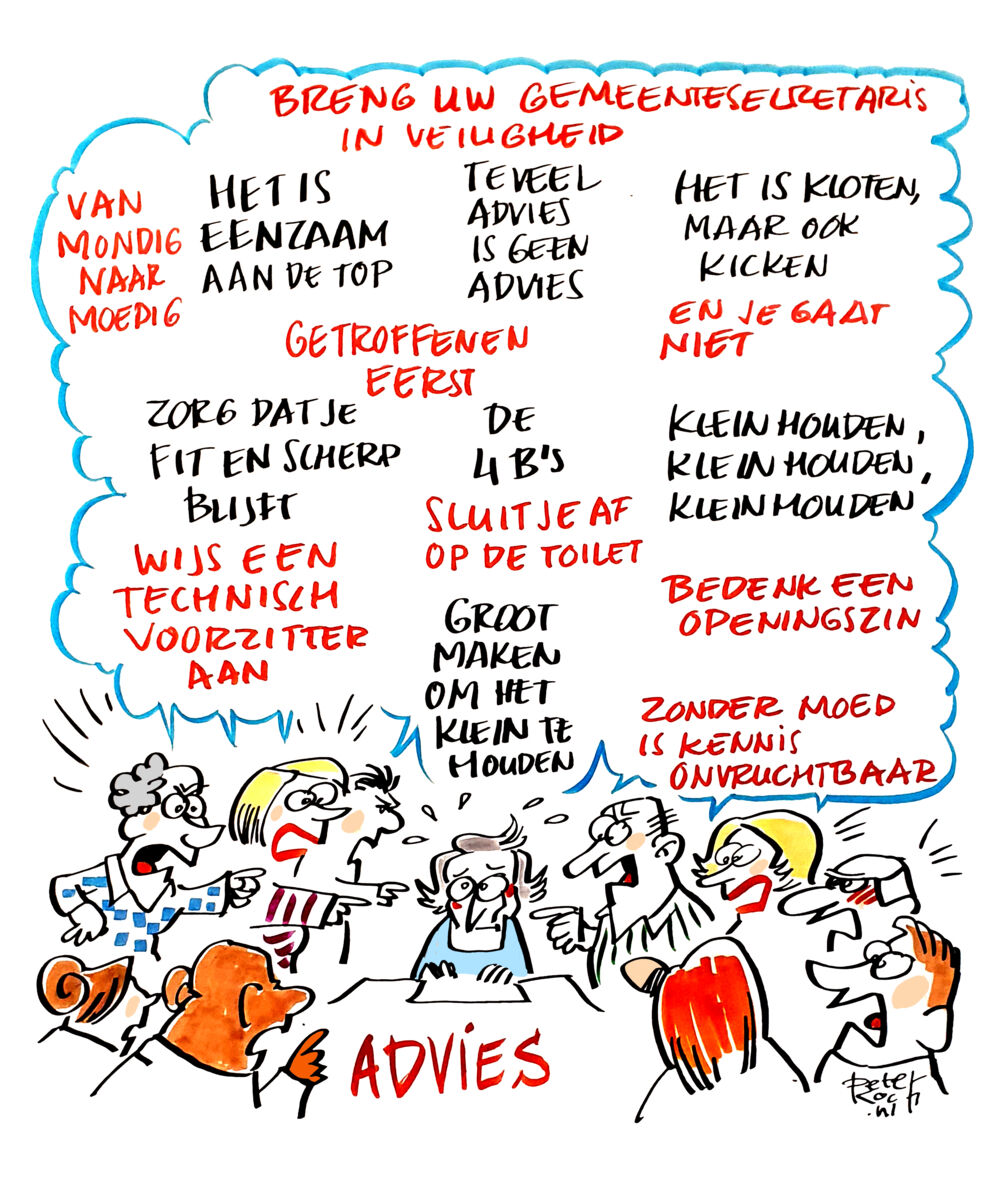 BRENG UW GEMEENTESECRETARIS
IN VEILIGHEID
VAN
MONDIG
NAAR
MOEDIG
HET IS
EENZAAM
AAN DE TOP
TEVEEL
ADVIES
IS GEEN
ADVIES
HET IS KLOTEN,
MAAR OOK
KICKEN
EN JE GAAT
NIET
GETROFFENEN
EERST
ZORG DAT JE
FIT EN SCHERP
BLIJFT
DE
4 B'S
KLEIN HOUDEN,
KLEIN HOUDEN,
KLEIN HOUDEN
WIJS EEN
TECHNISCH
VOORZITTER
AAN
SLUIT JE AF
OP DE TOILET
BEDENK EEN
OPENINGSZIN
GROOT
MAKEN
OM HET
KLEIN TE
HOUDEN
ZONDER MOED
IS KENNIS
ONVRUCHTBAAR
ADVIES
Peter
Koch
.nl